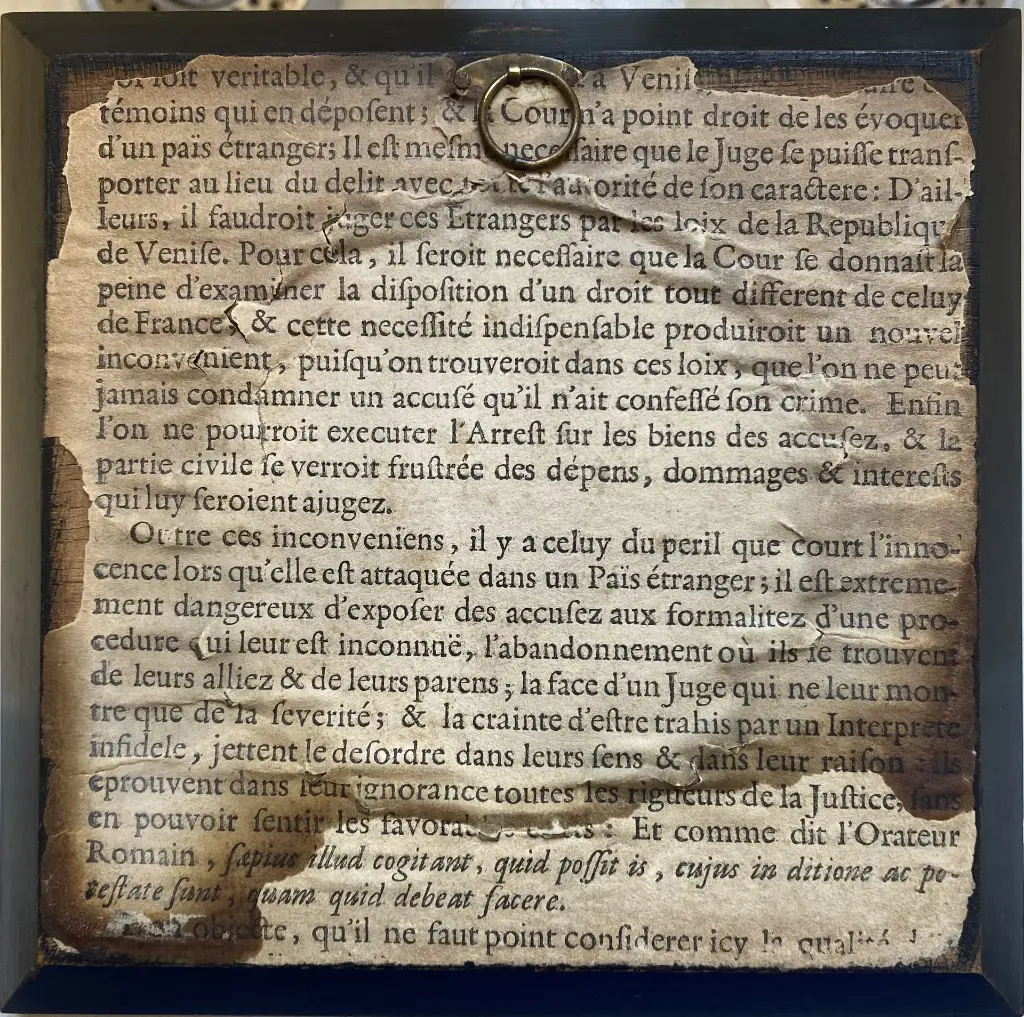 ſoit veritable, & qu'il a Veniſe
témoins qui en dépoſent; & la Cour n'a point droit de les évoquer
d'un païs étranger; Il eſt meſme neceſſaire que le Juge ſe puiſſe tranſ-
porter au lieu du delit avec toute l'autorité de ſon caractere: D'ail-
leurs, il faudroit juger ces Etrangers par les loix de la Republique
de Veniſe. Pour cela, il ſeroit neceſſaire que la Cour ſe donnaît la
peine d'examiner la diſpoſition d'un droit tout different de celuy
de France, & cette neceſſité indiſpenſable produiroit un nouvel
inconvenient, puiſqu'on trouveroit dans ces loix, que l'on ne peut
jamais condamner un accuſé qu'il n'ait confeſſé ſon crime. Enfin
l'on ne pourroit executer l'Arreſt ſur les biens des accuſez, & la
partie civile ſe verroit fruſtrée des dépens, dommages & intereſts
qui luy ſeroient ajugez.
Outre ces inconveniens, il y a celuy du peril que court l'inno-
cence lors qu'elle eſt attaquée dans un Païs étranger; il eſt extreme-
ment dangereux d'expoſer des accuſez aux formalitez d'une pro-
cedure qui leur eſt inconnuë, l'abandonnement où ils ſe trouvent
de leurs alliez & de leurs parens; la face d'un Juge qui ne leur mon-
tre que de la ſeverité; & la crainte d'eſtre trahis par un Interprete
infidele, jettent le deſordre dans leurs ſens & dans leur raiſon : ils
éprouvent dans leur ignorance toutes les rigueurs de la Juſtice, ſans
en pouvoir ſentir les : Et comme dit l'Orateur
Romain, ſæpius illud cogitant, quid poſſit is, cujus in ditione ac po-
teſtate ſunt, quam quid debeat facere.
objecte, qu'il ne faut point conſiderer icy la qualité